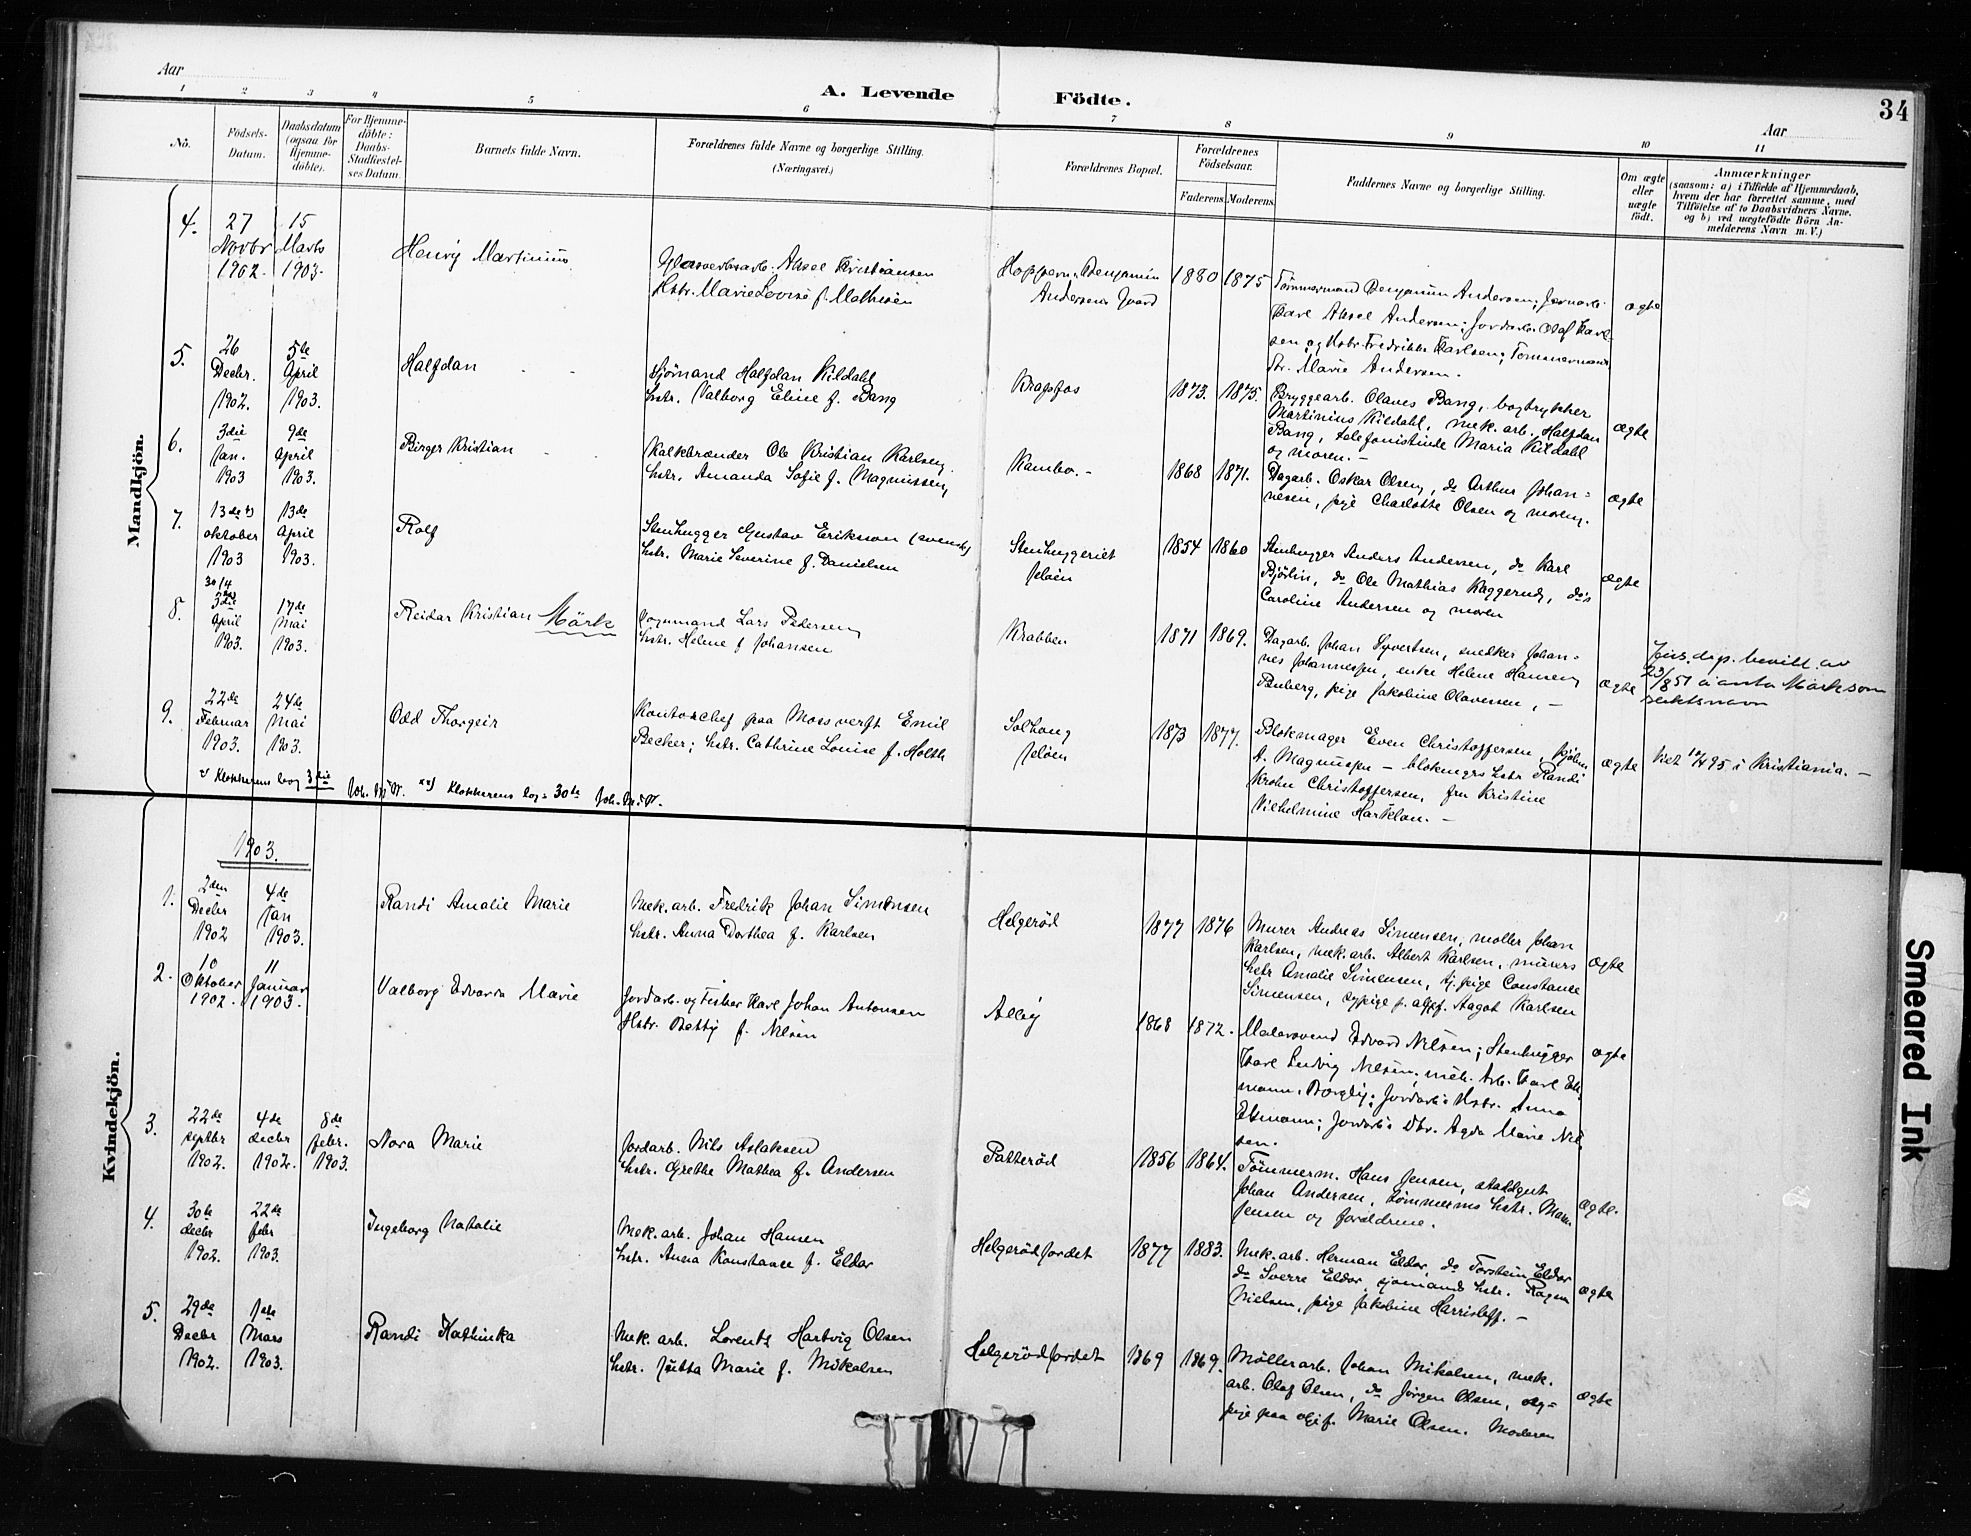 Aar
A. Levende Födte.
Aar
34
1 2 3 4 5 6 7 8 9 10 11
No.
Födsels-Datum.
Daabsdatum (ogsaa for Hjemmedöbte).
For Hjemmedöbte: Daabs-Stadfæstelses Datum.
Barnets fulde Navn.
Forældrenes fulde Navne og borgerlige Stilling.
(Næringsvei.)
Forældrenes Bopæl.
Forældrenes Födselsaar.
Faderens. Moderens.
Faddernes Navne og borgerlige Stilling.
Om ægte eller uægte födt.
Anmærkninger
(saasom: a) i Tilfælde af Hjemmedaab,
hvem der har forrettet samme, med
Tilföielse af to Daabsvidners Navne.
og b) ved uægtefödte Börn An-
melderens Navn m. V.)
Mandkjön.
4. 27 Novbr 1902. 15 Marts 1903.
Henry Martinius
Glasverksarb. Aksel Kristiansen
Hstr. Marie Lovise f. Mathisen
Hoppern. Benjamin
Andersens Gaard
1880 1875
Tømmermand Benjamin Andersen; Jernarb.
Karl Aksel Andersen; Jordarb. Olaf Karl-
sen og Hstr. Fredrikke Karlsen; Tømmermands
Dr. Marie Andersen.
ægte
5. 26 Decbr. 1902. 5te April 1903.
Halfdan
Sjømand Halfdan Kildahl
hstr. Valborg Eline f. Bang
Krapfos
1873. 1875.
Bryggearb. Olaves Bang, bogtrykker
Martinius Kildahl, mek. arb. Halfdan
Bang, telefonistinde Maria Kildahl
og moren. -
ægte
6. 3die Jan. 1903 9de April 1903.
Birger Kristian
Kalkbrænder Ole Kristian Karlsen,
hstr. Amanda Sofie f. Magnussen,
Kambo. -
1868 1871.
Dagarb. Oskar Olsen, do Arthur Johan-
nesen, pige Charlotte Olsen og moren.
ægte
7. 13de *) oktober 1903 13de April 1903.
Rolf
Stenhugger Gustav Eriksson (svensk)
hstr. Marie Severine f. Danielsen
Stenhuggeriet
Jeløen
1854 1860
Stenhugger Anders Andersen, do Karl
Bjørlin, do Ole Mathias Kaggerud, do's
Caroline Andersen og moren
ægte
8. 30/4 3die April 1903. 17de Mai 1903.
Reidar Kristian Mörk
Vognmand Lars Pedersen,
hstr. Helene f Johansen
Krabben
1871 1869.
Dagarb. Johan Syvertsen, snedker Johan-
nes Johannessen, enke Helene Hansen
Buberg, pige Jakobine Olavesen, -
ægte
Jus. dep. bevill. av
23/8 51 å anta Mörk som
slektsnavn
9. 22de Februar 1903. 24de Mai 1903.
Odd Thorgeir
Kontorchef paa Moss verft Emil
Becker; hstr. Cathrine Louise f. Holth
Solhaug
Jeløen
1873 1877.
Blokmager Even Christoffersen, kjøbm
A. Magnussen - blokmgrs hstr Randi
Krohn Christoffersen, fru Kristine
Vilhelmine Harklau. -
ægte
i Kristiania. -
*) Klokkerens bog 3die **) Klokkerens bog = 30te
Kvindekjön.
1903.
1. 2den Decbr 1902 4de Jan 1903.
Randi Amalie Marie
Mek. arb. Fredrik Johan Simensen
hstr. Anna Dorthea f. Karlsen
Helgerød
1877 1876
Murer Andreas Simensen, møller Johan
Karlsen, mek. arb. Albert Karlsen, murers
hstr Amalie Simensen, tj. pige Constance
Simensen, sypige Aagot Karlsen
ægte
2. 10 Oktober 1902. 11 Januar 1903.
Valborg Edvarda Marie
Jordarb. og Fisker Karl Johan Antonsen
Hstr. Betty f. Nilsen
Alley
1868 1872.
Malersvend Edvard Nilsen; Stenhugger
Karl Ludvig Nilsen; mek. Arb. Karl Ek-
mann, Borglig; Jordarb's Hstr. Anna
Ekmann; Jordarb's Dtr. Agda Marie Nil-
sen.
ægte
3. 22de septbr 1902. 4de decbr 1902. 8de febr. 1903.
Nora Marie
Jordarb. Nils Aslaksen
hstr. Grethe Mathea f. Andersen
Patterød
1856 1864.
Tömmerm. Hans Jensen, stadsgut
Johan Andersen, tømmerms hstr. Maren
Jensen og forældrene.
ægte.
4. 30te decbr 1902. 22de febr 1903.
Ingeborg Natalie
Mek. arb. Johan Hansen
hstr. Anna Konstance f. Eldor
Helgerødjordet
1877 1883.
Mek. arb. Herman Eldor, do Torstein Eldor
do Sverre Eldor, sjømands hstr. Ragna
Nielsen, pige Jakobine Harrisleff. -
ægte
5. 29de Decbr 1902. 1ste Mars 1903.
Randi Kathinka
Mek. arb. Lorentz Hartvig Olsen
hstr. Jutta Marie f. Mikalsen
Helgerødjordet
1869 1869.
Møllerarb. Johan Mikalsen, mek.
arb. Olaf Olsen, do Jørgen Olsen, sy-
pige Marie Olsen. Moderen
ægte
Smeared Ink